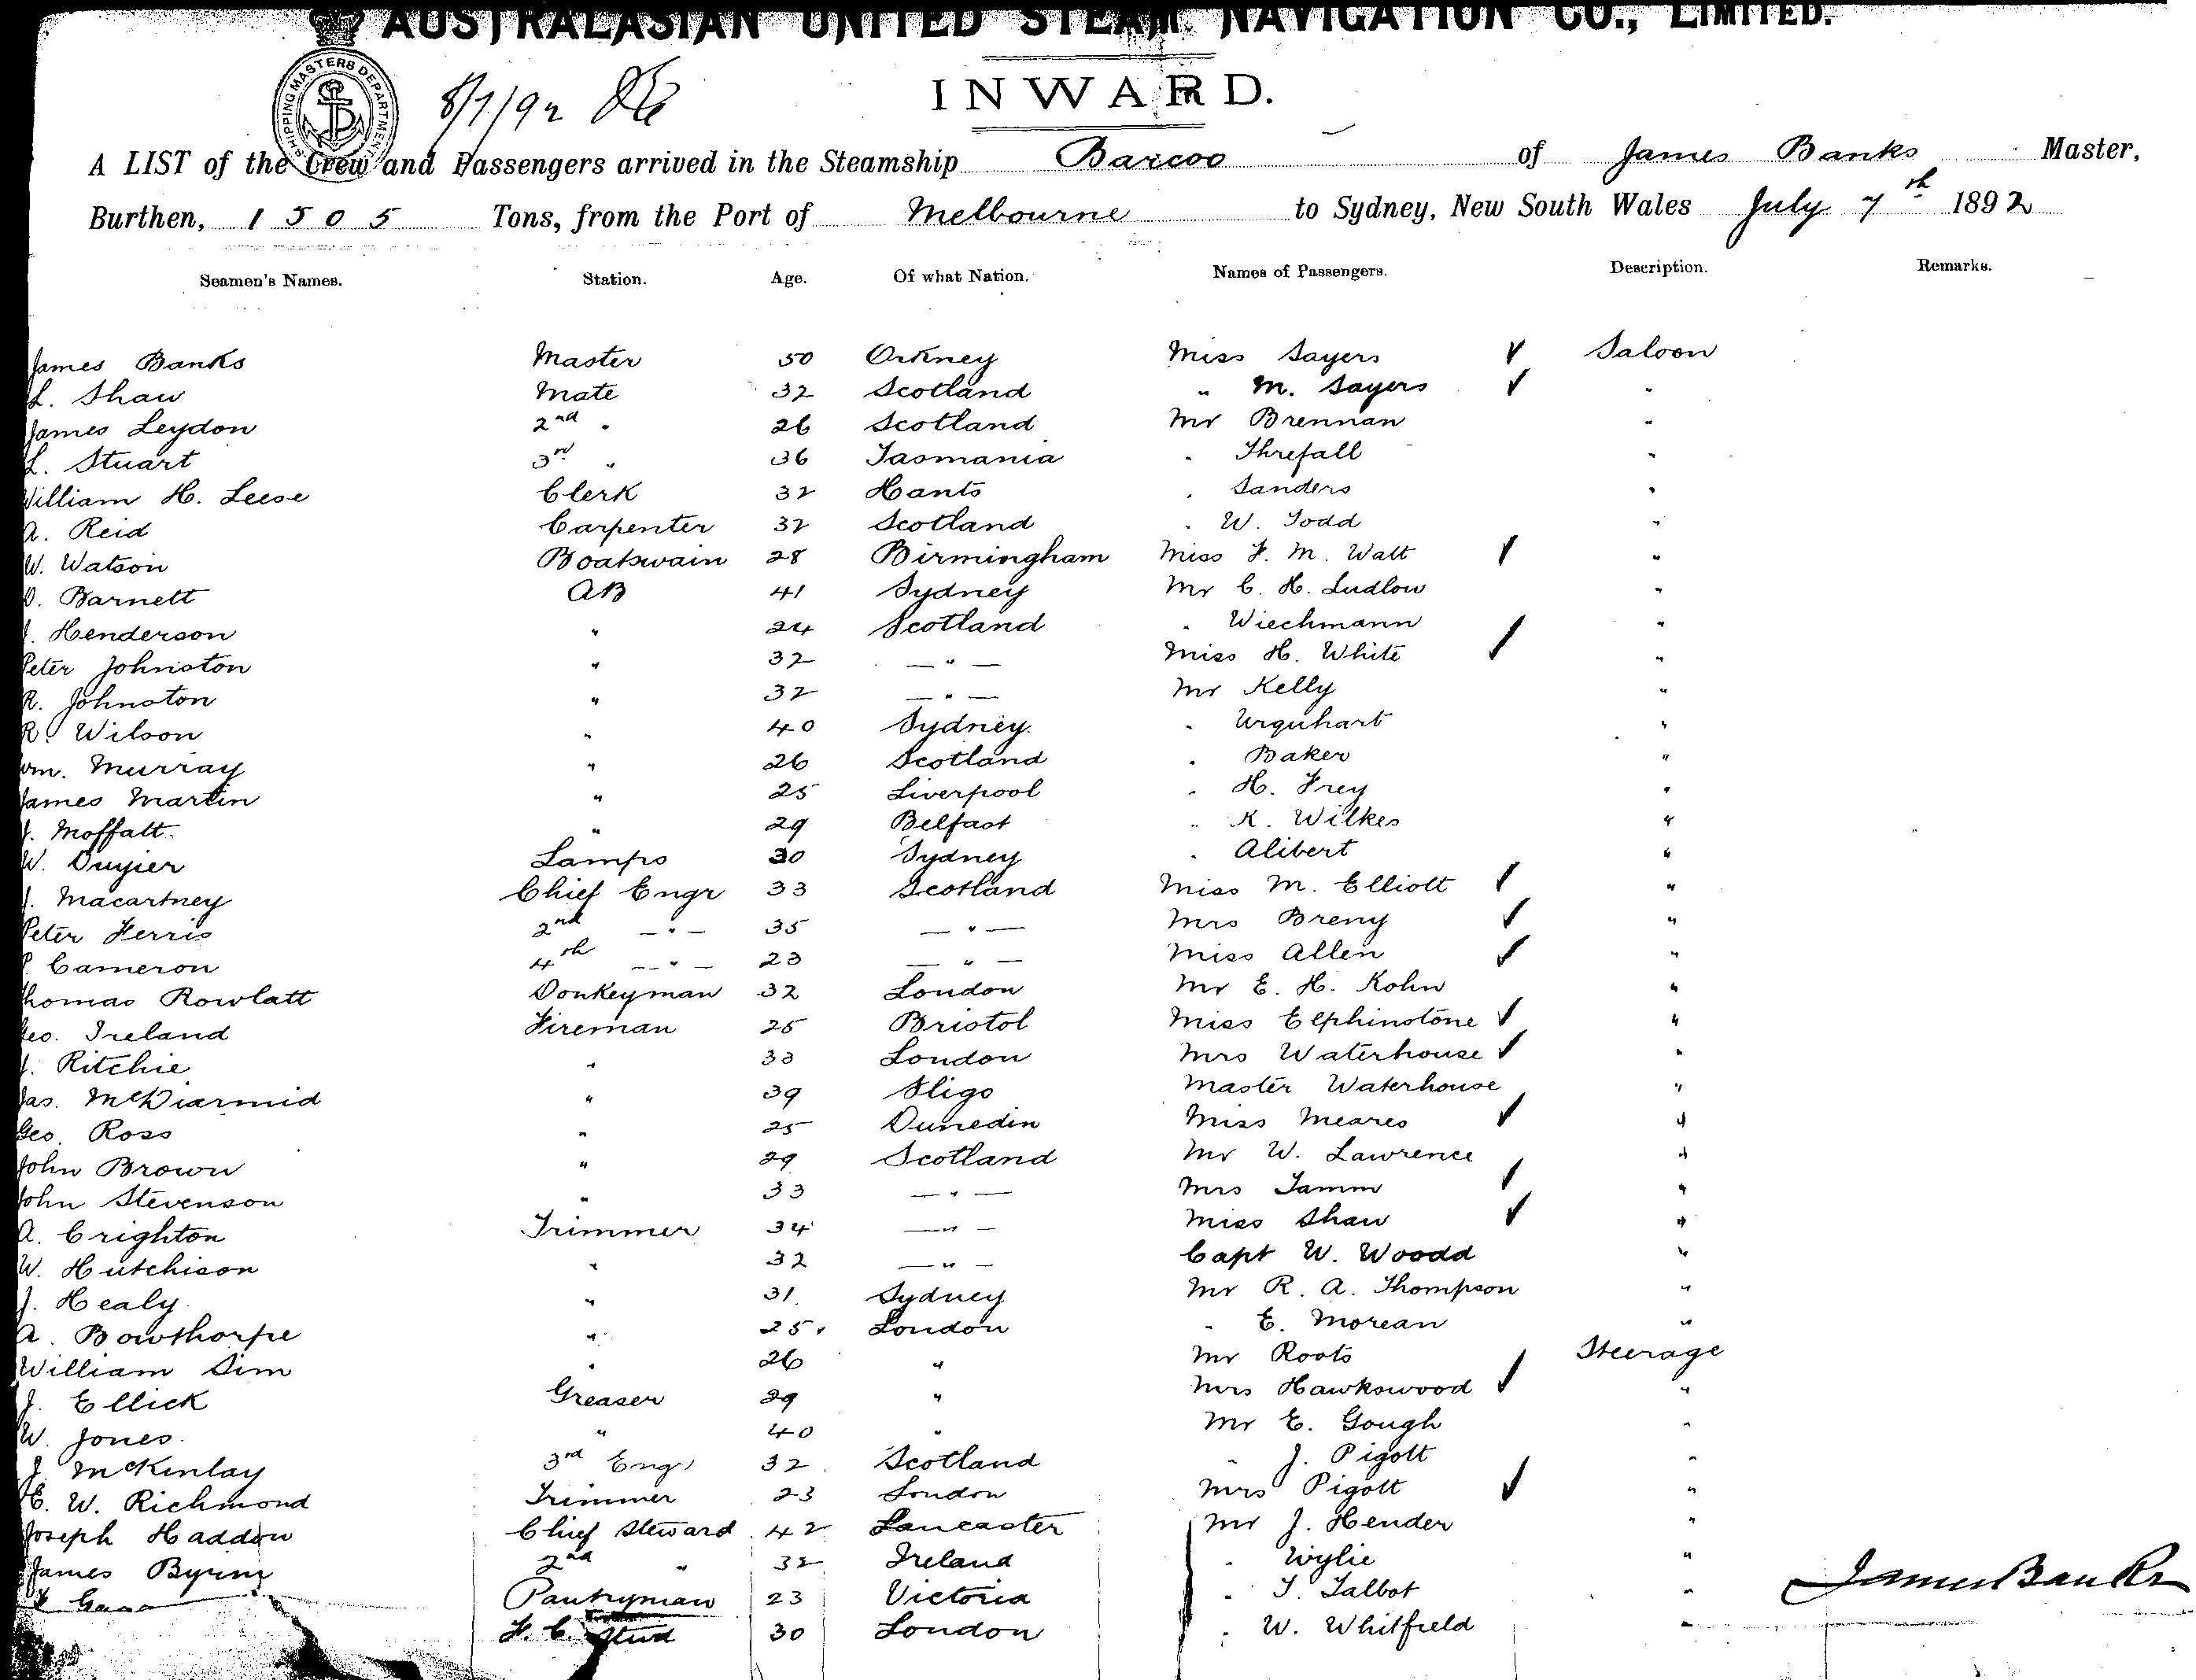 AUSTRALASIAN UNITED STEAM NAVIGATION CO., LIMITED.
INWARD.
SHIPPING MASTERS DEPARTMENT
8/7/92
A LIST of the Crew and Passengers arrived in the Steamship Barcoo of James Banks Master,
Burthen, 1505 Tons, from the Port of Melbourne to Sydney, New South Wales July 7th 1892
Seamen's Names. Station. Age. Of what Nation. Names of Passengers. Description. Remarks.
James Banks Master 50 Orkney Miss Sayers ✓ Saloon
L. Shaw Mate 32 Scotland " M. Sayers ✓ "
James Leydon 2nd " 26 Scotland Mr Brennan "
L. Stuart 3rd " 36 Tasmania " Threfall "
William H. Leese Clerk 32 Hants " Sanders "
A. Reid Carpenter 32 Scotland " W. Todd "
W. Watson Boatswain 28 Birmingham Miss F. M. Watt ✓ "
Barnett AB 41 Sydney Mr C. H. Ludlow "
Henderson " 24 Scotland " Wiechmann "
Peter Johnston " 32 — " — Miss H. White ✓ "
R. Johnston " 32 — " — Mr Kelly "
R. Wilson " 40 Sydney " Urquhart "
Wm. Murray " 26 Scotland " Baker "
James Martin " 25 Liverpool " H. Frey "
J. Moffatt " 29 Belfast " K. Wilkes "
W. Lamps 30 Sydney " Alibert "
J. Macartney Chief Engr 33 Scotland Miss M. Elliott ✓ "
Peter Ferris 2nd — " — 35 — " — Mrs Breny ✓ "
Cameron 4th — " — 23 — " — Miss Allen ✓ "
Thomas Rowlatt Donkeyman 32 London Mr E. H. Kohn "
Geo. Ireland Fireman 25 Bristol Miss Elphinstone ✓ "
J. Ritchie " 33 London Mrs Waterhouse ✓ "
Jas. McDiarmid " 39 Sligo Master Waterhouse "
Geo. Ross " 25 Dunedin Miss Meares ✓ "
John Brown " 29 Scotland Mr W. Lawrence "
John Stevenson " 33 — " — Mrs Tamm ✓ "
A. Crighton Trimmer 34 — " — Miss Shaw ✓ "
W. Hutchison " 32 — " — Capt W. Woodd "
J. Healy " 31 Sydney Mr R. A. Thompson "
A. Bowthorpe " 25 London " E. Morean "
William Sim " 26 " Mr Roots Steerage
J. Ellick Greaser 29 " Mrs Hawkswood ✓ "
W. Jones " 40 " Mr E. Gough "
J. McKinlay 3rd Engr 32 Scotland " J. Pigott "
E. W. Richmond Trimmer 23 London Mrs Pigott ✓ "
Joseph Haddow Chief Steward 42 Lancaster Mr J. Hender "
James Byrne 2nd " 32 Ireland " Wylie "
Pantryman 23 Victoria " T. Talbot "
F. C. Stwd 30 London " W. Whitfield "
James Banks